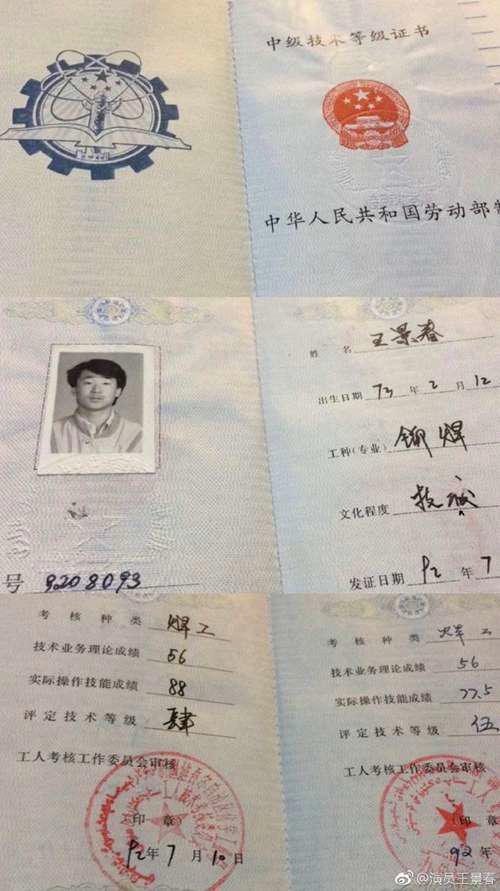 中级技术等级证书
中华人民共和国劳动部制
姓 名 王景春
出生日期 73 年 2 月 12
工种(专业) 铆焊
文化程度 技
发证日期 92 年 7
号 9208093
考 核 种 类 焊工
技术业务理论成绩 56
实际操作技能成绩 88
评定技术等级 肆
工人考核工作委员会审核
(印 章)
92年 7 月 10日
考 核 种 类 焊工
技术业务理论成绩 56
实际操作技能成绩 77.5
评定技术等级 伍
工人考核工作委员会审核
(印 章)
92 年
@演员王景春